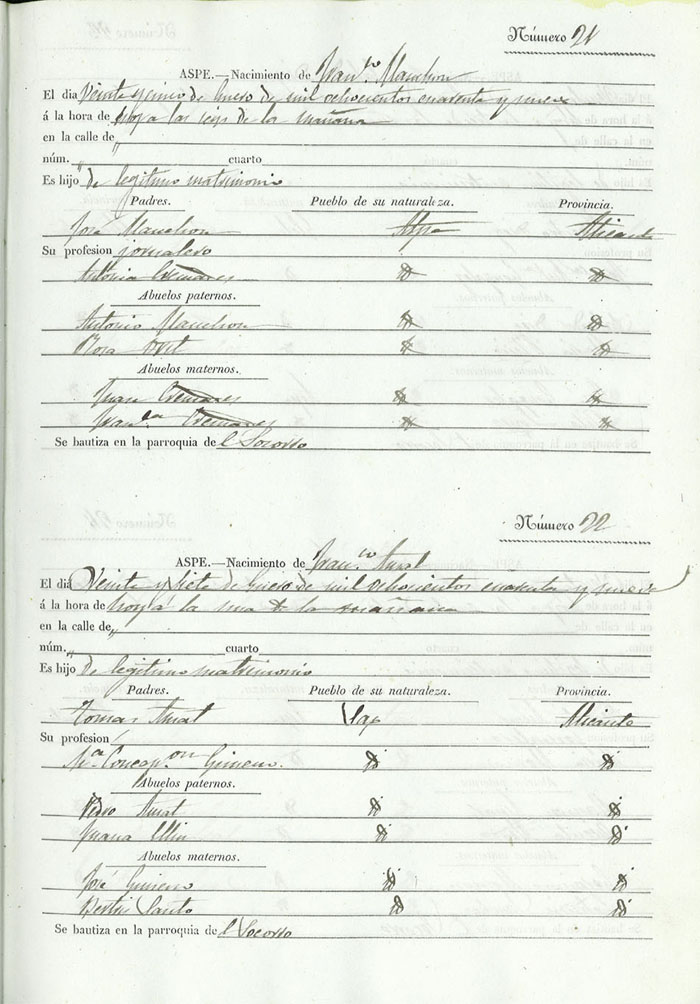 Número 21
ASPE.—Nacimiento de Fran.co Manchon
El dia Veinte y cinco de Enero de mil ochocientos cuarenta y nueve
á la hora de hoy a las seis de la mañana
en la calle de „
núm. „ cuarto
Es hijo de legitimo matrimonio
Padres. Pueblo de su naturaleza. Provincia.
José Manchon Aspe Alicante
Su profesion jornalero
Antonia Cremades id id
Abuelos paternos.
Antonio Manchon id id
Rosa id id
Abuelos maternos.
Juan Cremades id id
Fran.ca Cremades id id
Se bautiza en la parroquia de el Socorro
Número 22
ASPE.—Nacimiento de Fran.co
El dia Veinte y siete de Enero de mil ochocientos cuarenta y nueve
á la hora de hoy á la una de la mañana
en la calle de „
núm. „ cuarto
Es hijo de legitimo matrimonio
Padres. Pueblo de su naturaleza. Provincia.
Tomas Sax Alicante
Su profesion
M.a Concep.on Gimeno. id id
Abuelos paternos.
Pedro id id
Juana id id
Abuelos maternos.
José Gimeno id id
id id
Se bautiza en la parroquia de el Socorro